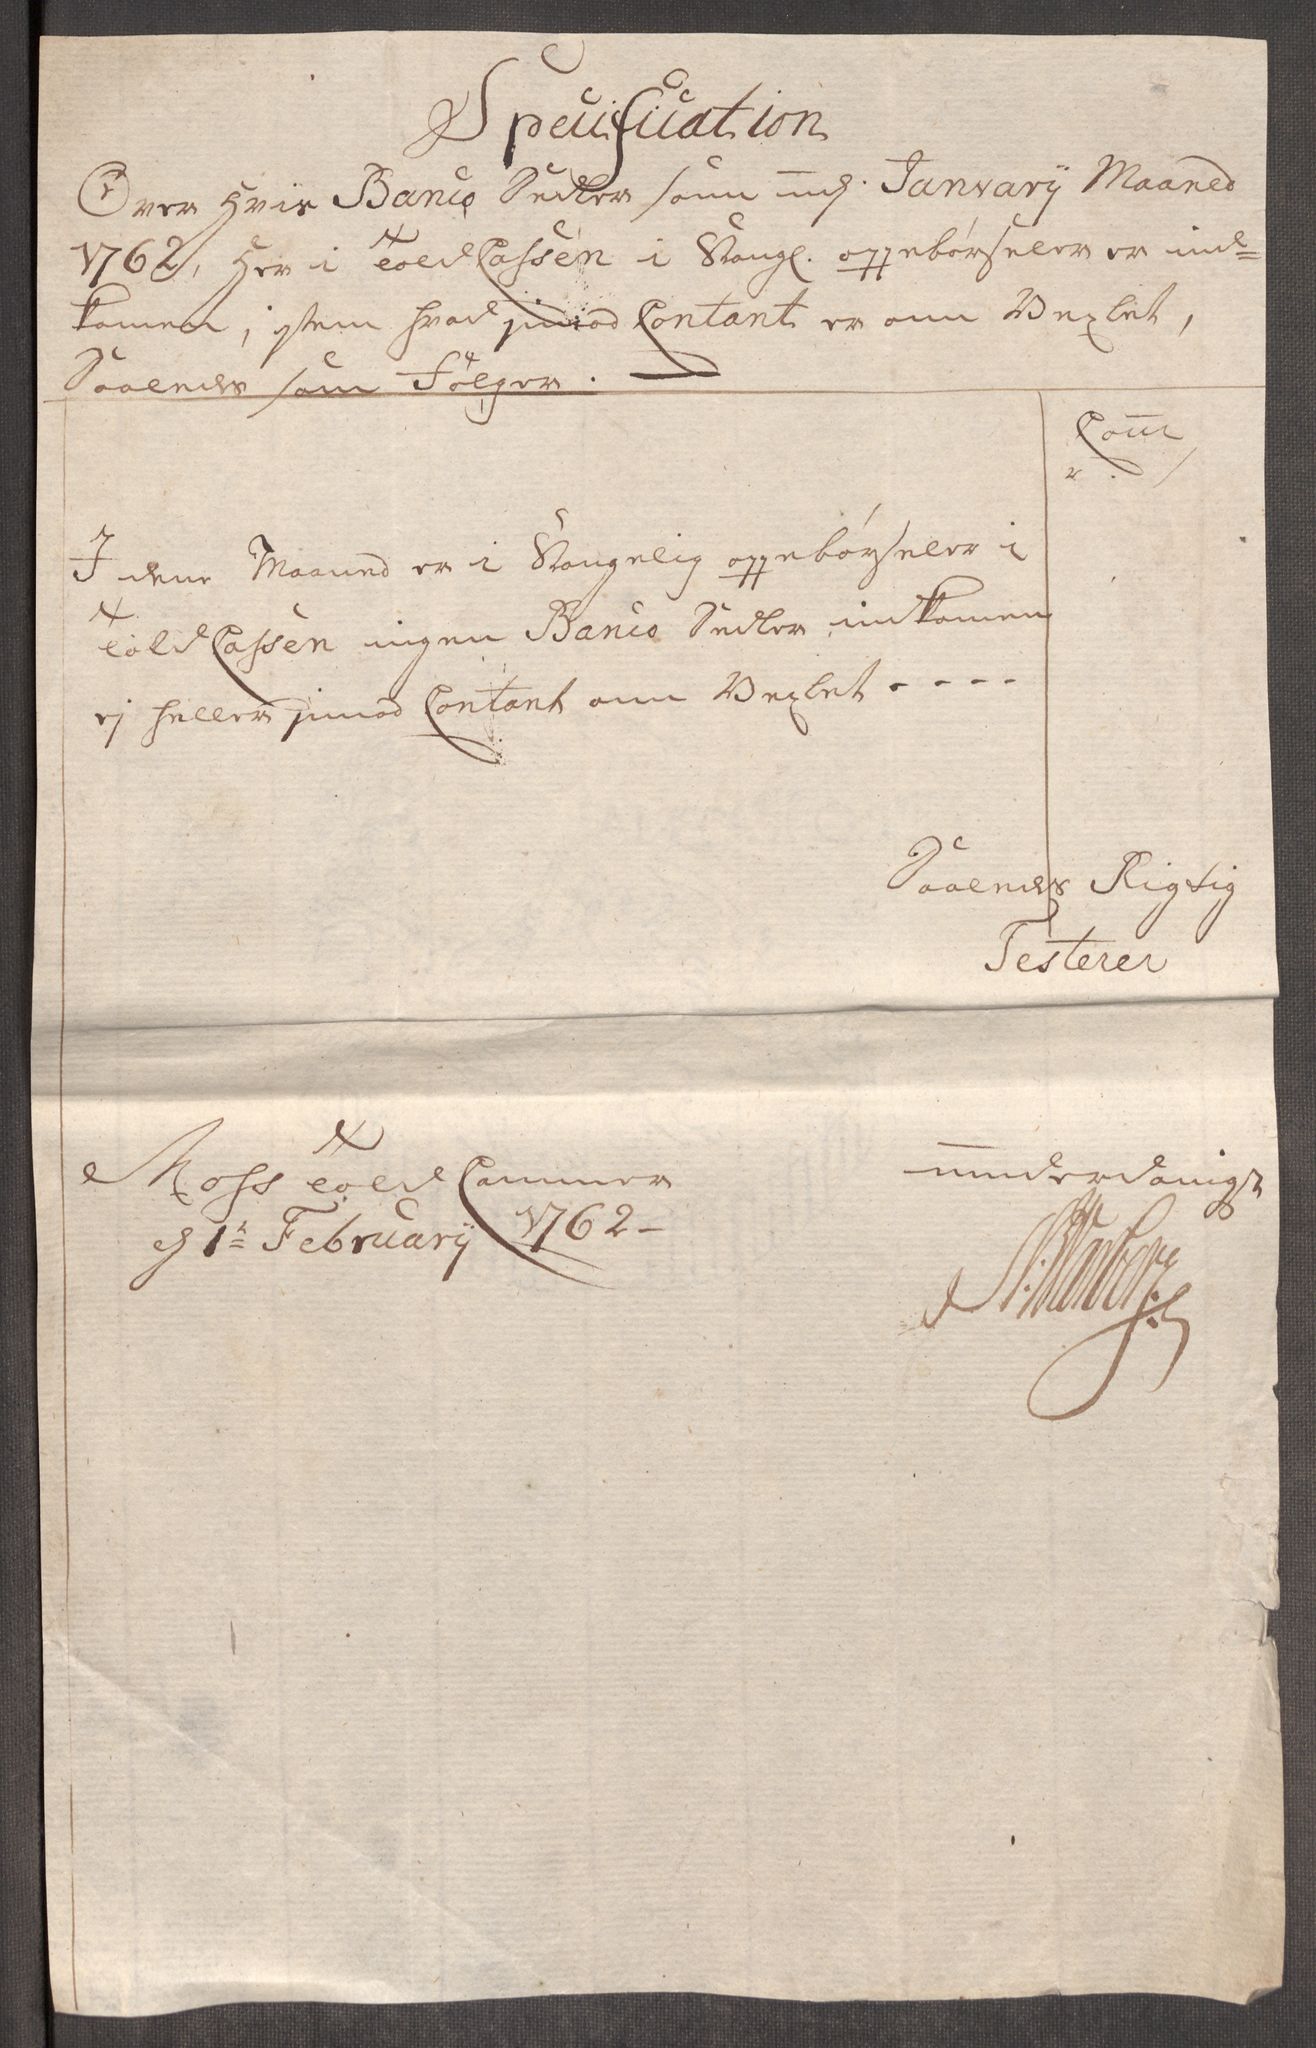 Specification
Over Hvis Banco Sedler som udj. Janvarij Maaned
1762, Her i Told Cassen i Kongl. oppebörseler er ind=
komen, istem hvad jmod Contant er om Vexlet,
Saaledes som Fölger.
Cour
r . s
I dene Maaned er i Kongelig oppebörseler i
Told Cassen ingen Banco Sedler indkomen
ej heller jmod Contant om Vexlet - - - -
Saaledes Rigtig
Testerer
Moss Told Cammer
d 1te Februarij 1762 -
underdanigst